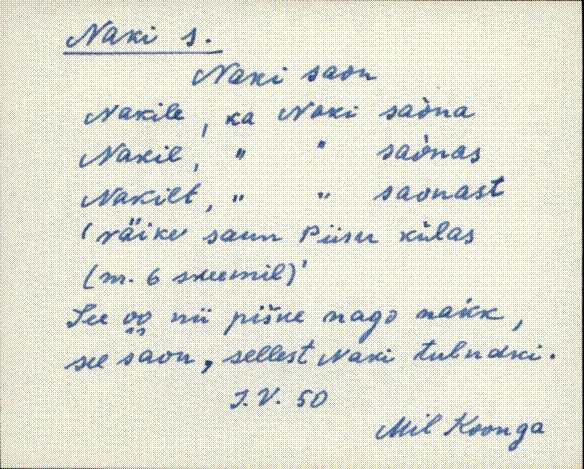 Naki s.
Naki saon
Nakile, ka Naki saòna
Nakil, " " saònas
Nakilt, " " saonast
'väike saun Piisu külas
(nr. 6 skeemil)'
See oo nii piśke nago nakk,
see saon, sellest Naki tulndki.
J. V. 50
Mil Koonga